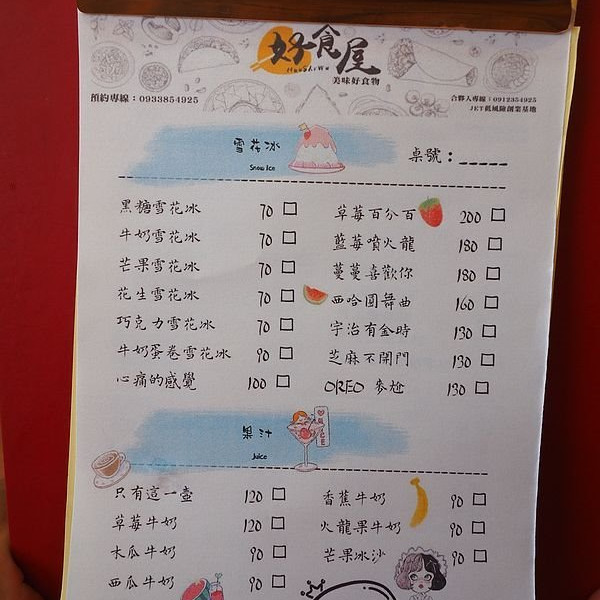 好食屋
HaoShiWu
美味好食物
預約專線：0933854925
合夥人專線：0912354925
JET低風險創業基地
雪花冰
Snow Ice
桌號：_____
黑糖雪花冰 70 □
牛奶雪花冰 70 □
芒果雪花冰 70 □
花生雪花冰 70 □
巧克力雪花冰 70 □
牛奶蛋卷雪花冰 90 □
心痛的感覺 100 □
草莓百分百 200 □
藍莓噴火龍 180 □
蔓蔓喜歡你 180 □
西哈圓舞曲 160 □
宇治有金時 130 □
芝麻不開門 130 □
OREO 麥尬 130 □
果汁
Juice
只有這一壺 120 □
草莓牛奶 120 □
木瓜牛奶 90 □
西瓜牛奶 90 □
香蕉牛奶 90 □
火龍果牛奶 90 □
芒果冰沙 90 □